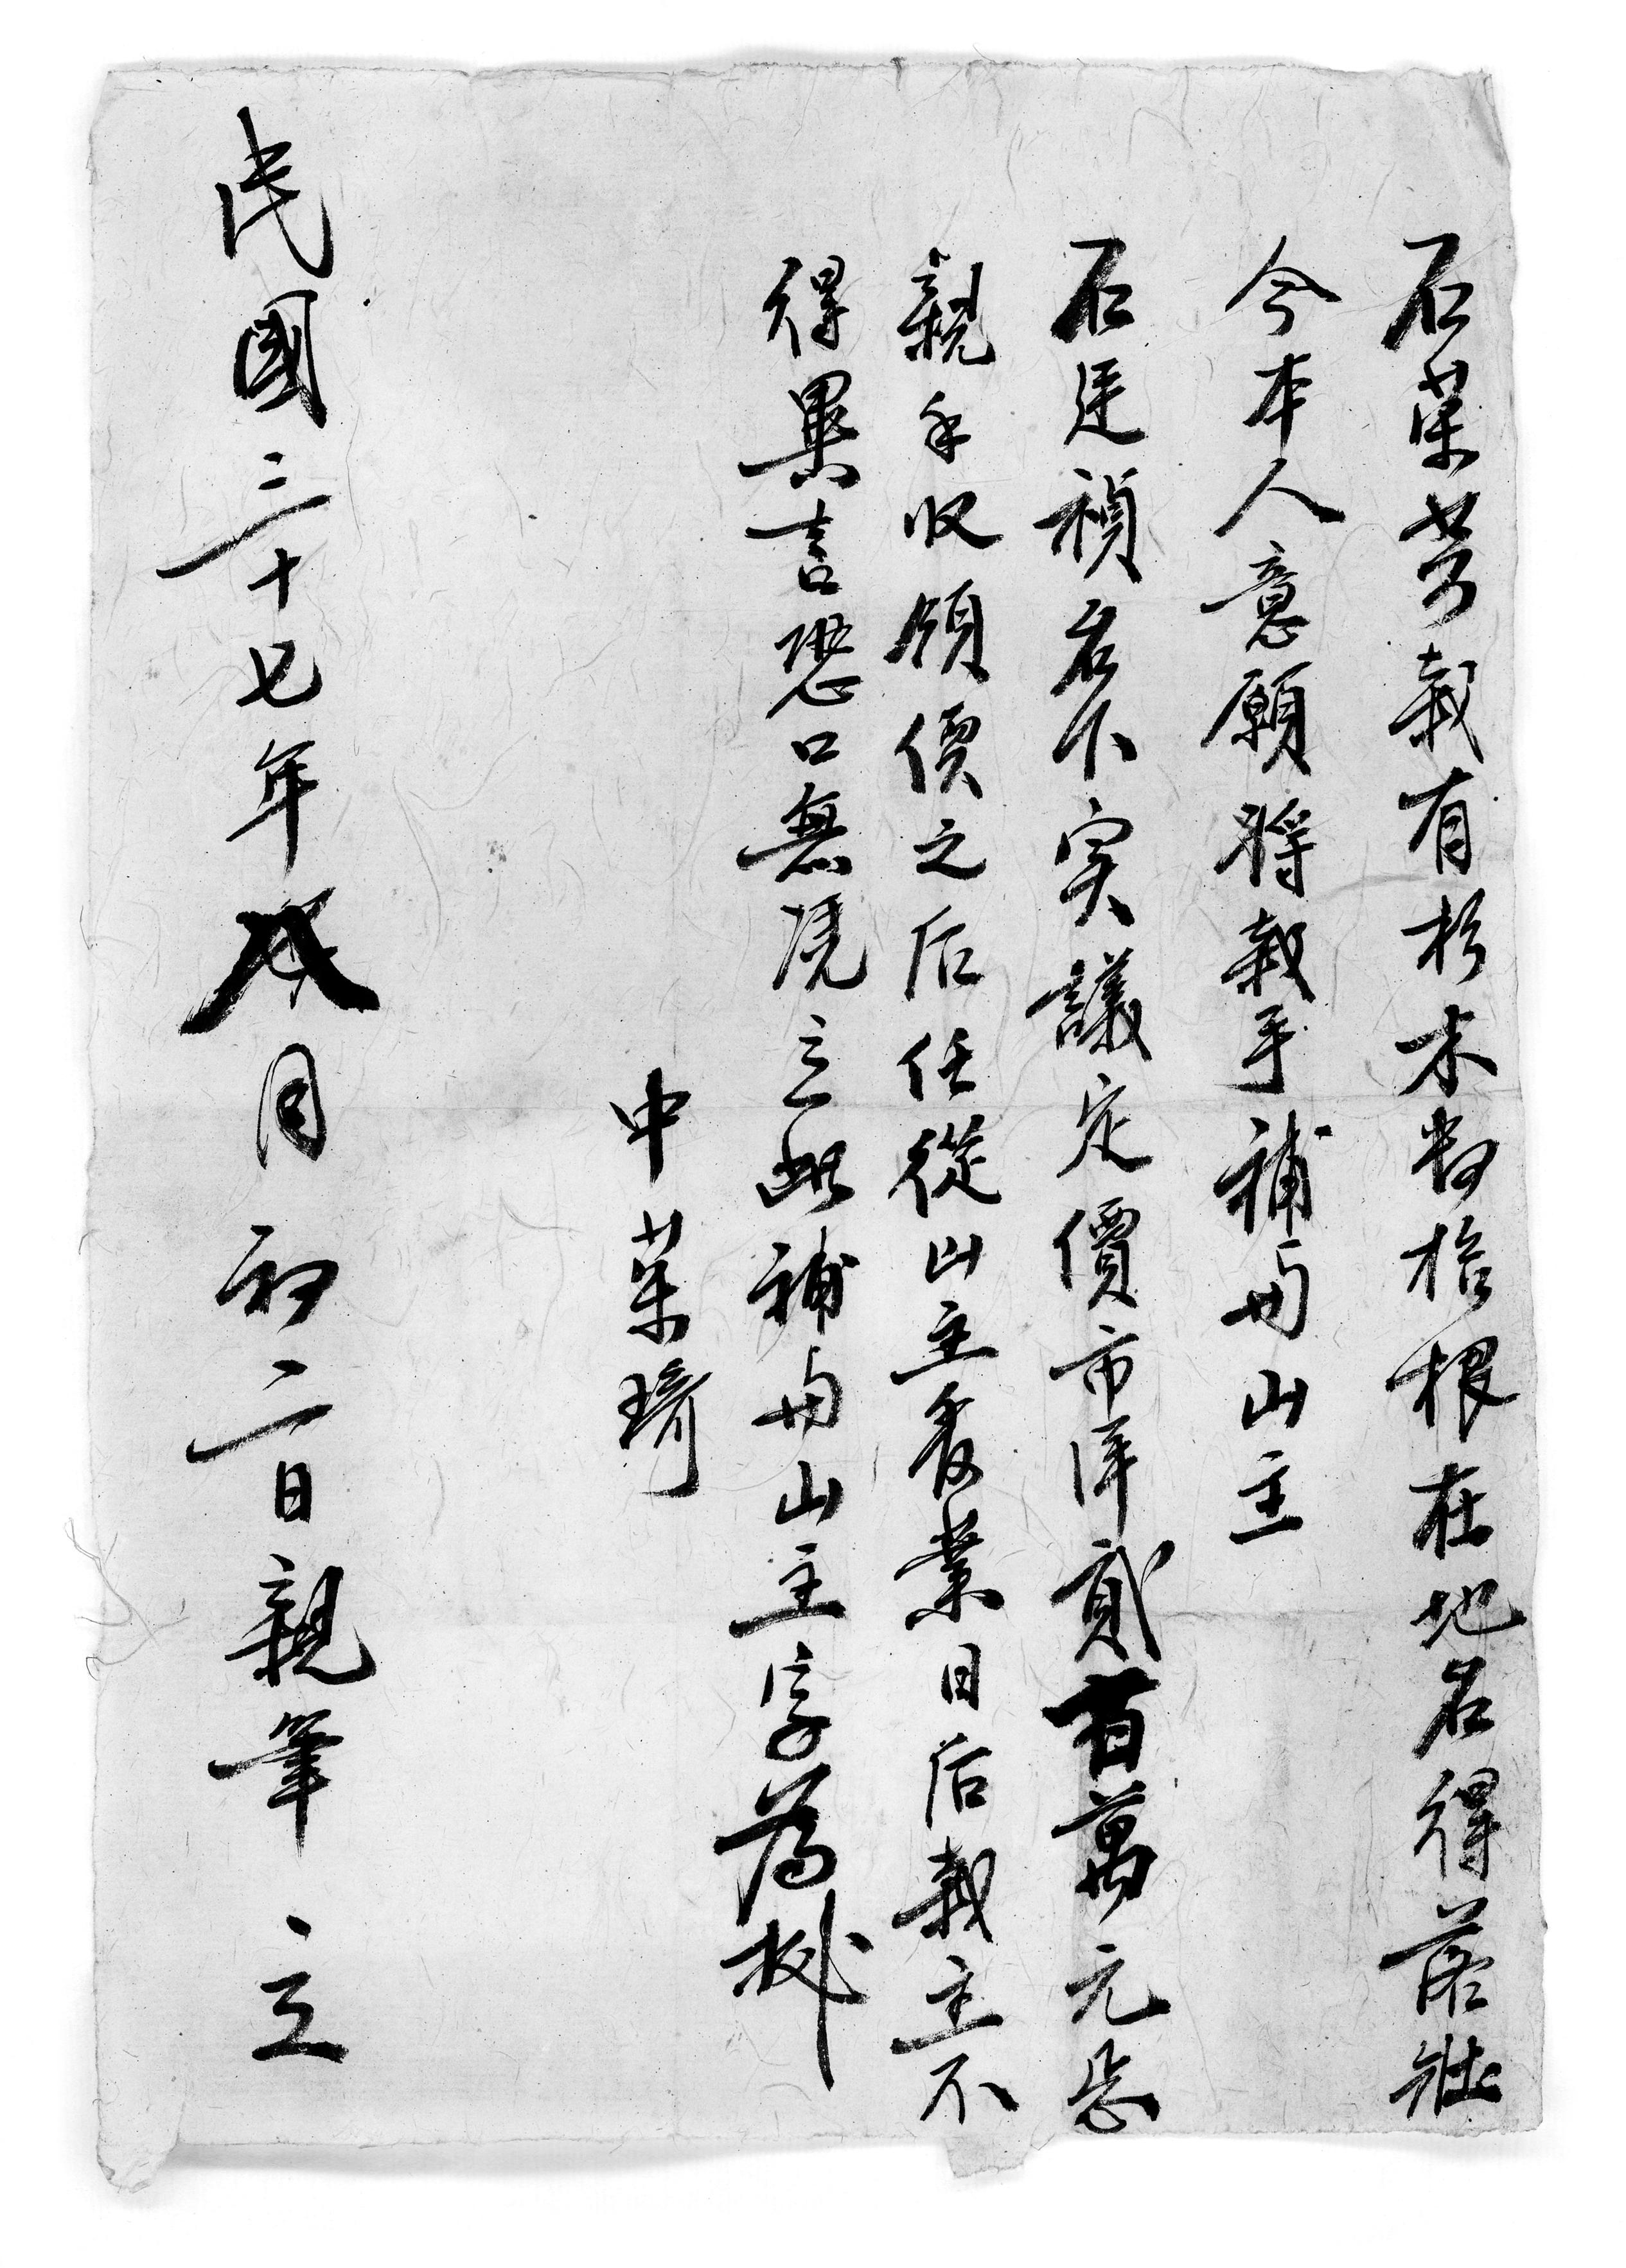 石榮芳栽有杉木数拾根在地名得落
今本人意願將栽手補與山主
石廷禎名下实議定價市洋貳百萬元岳
親手收領價之后任從山主畜業日后栽主不
得異言恐口無凭立此補與山主字為挑
中 荣琦
民國三十七年六月初二日親筆 立